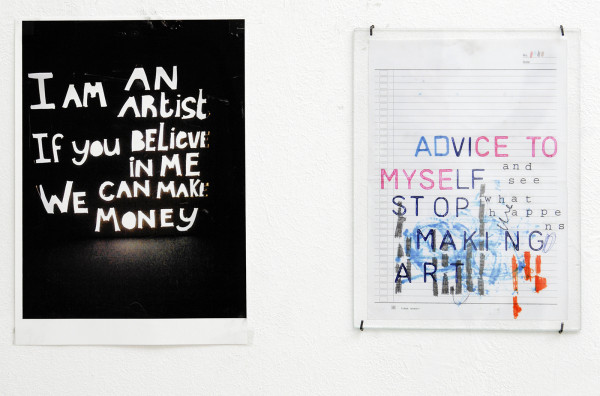 I AM AN
ARtist
If you BELIEVE
in ME
WE CAN MAKE
MONEY
ADVICE TO
MYSELF
and
see
STOP
what
happe
ns
MAKING
ART